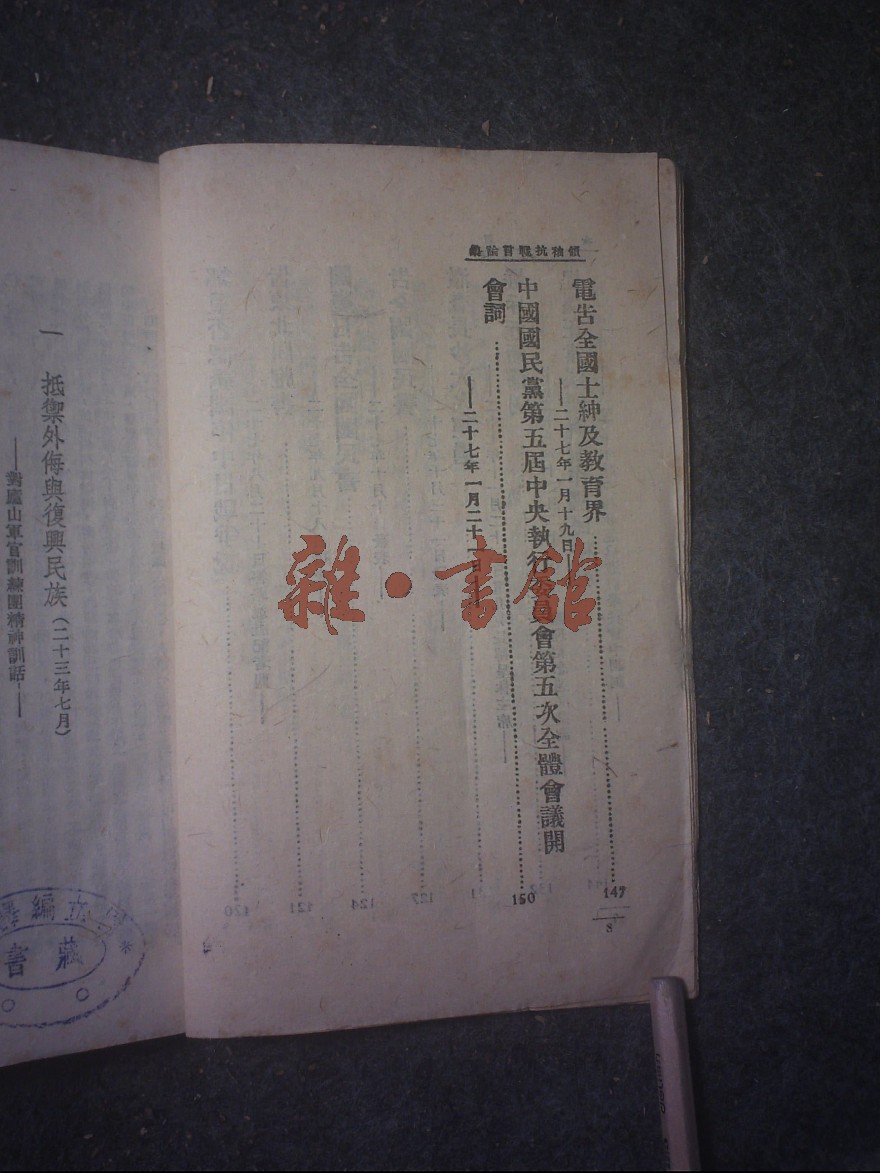 領袖抗戰言論集
電告全國士紳及教育界
147
——二十七年一月十九日——
中國國民黨第五屆中央執行委員會第五次全體會議開
會詞
150
——二十七年一月二十一日——
8
雜·書館
一　抵禦外侮與復興民族（二十三年七月）
——對廬山軍官訓練團精神訓話——
立編
藏書